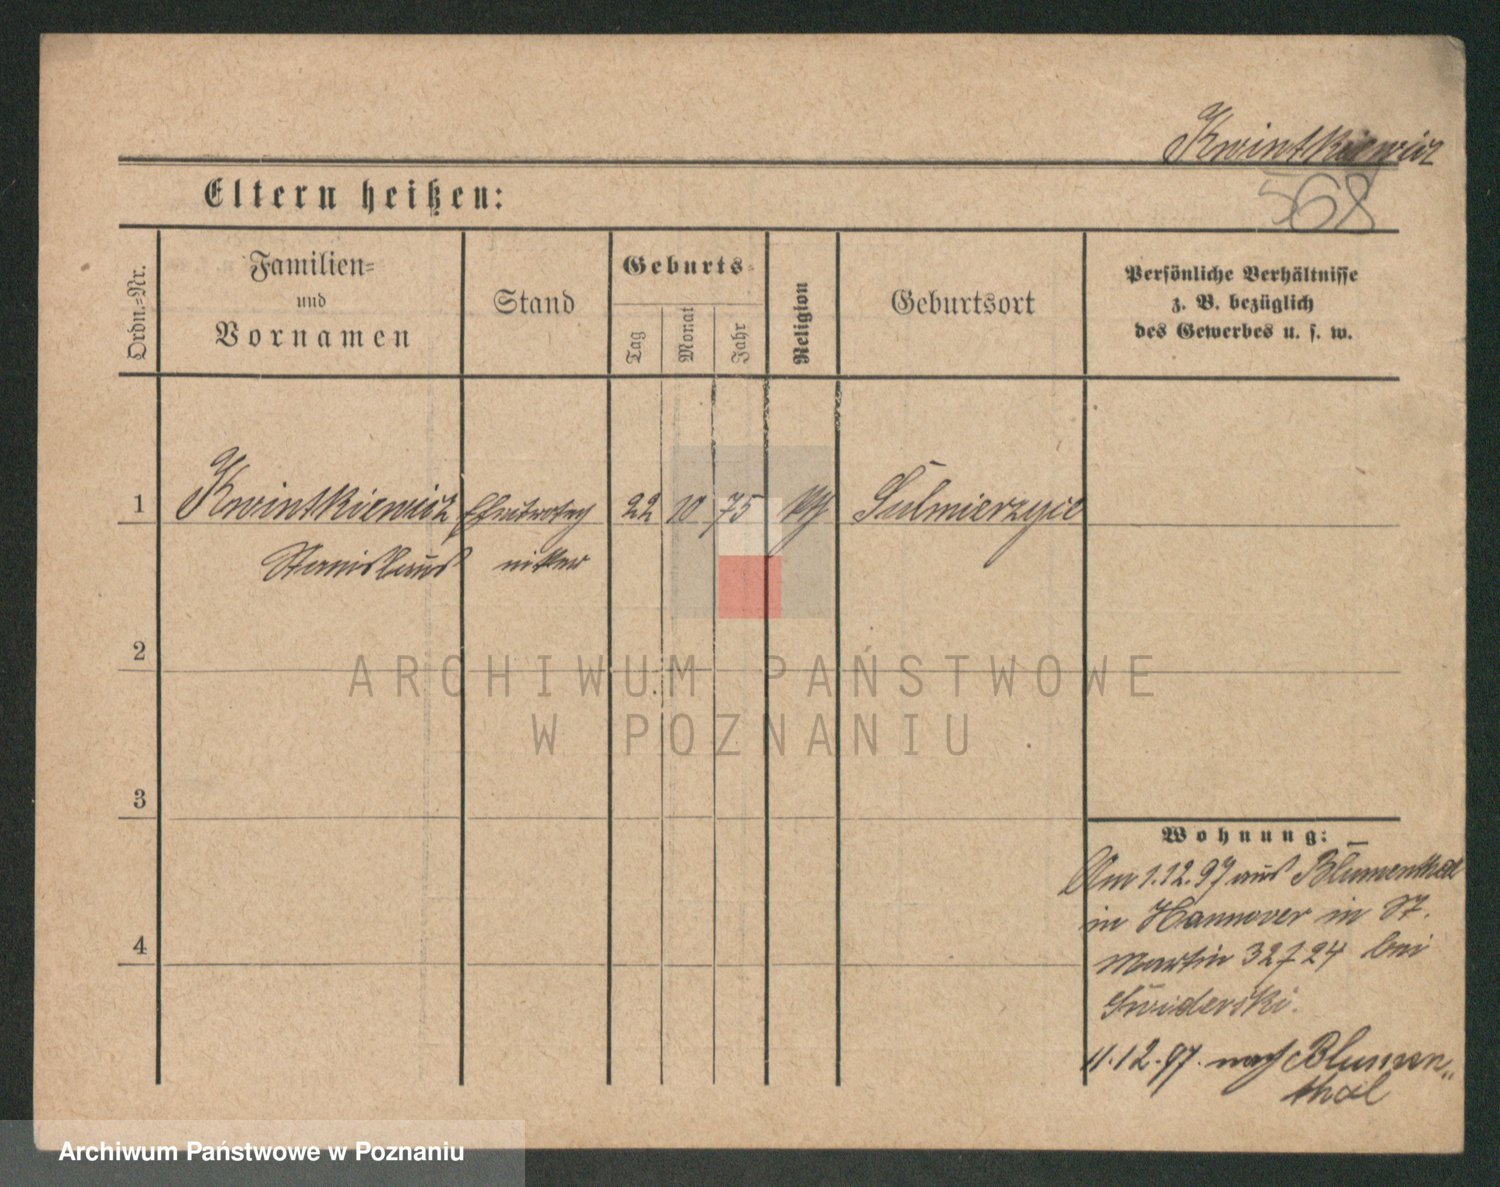 Kwintkiewicz
568
Eltern heißen:
Ordn.-Nr.
Familien-
und
Vornamen
Stand
Geburts-
Tag
Monat
Jahr
Religion
Geburtsort
Persönliche Verhältnisse
z. B. bezüglich
des Gewerbes u. s. w.
1 Kwintkiewicz 22 10 75 kth Sulmierzyce
Stanislaus
2
ARCHIWUM PAŃSTWOWE
W POZNANIU
3
Wohnung:
Am 1.12.97 aus Blumenthal
in Hannover in St.
4
Martin 32/24 bei
Swiderski.
11.12.97. nach Blumen-
thal
Archiwum Państwowe w Poznaniu